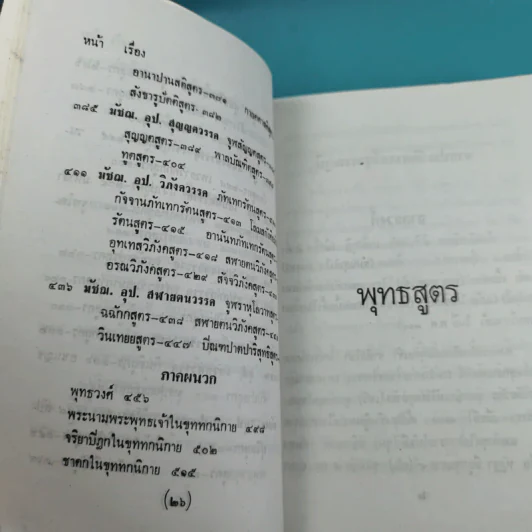 หน้า เรื่อง
อานาปานสติสูตร-๓๘๑
สังขารูปัตติสูตร ๓๘๒
๓๘๕ มัชฌ. อุป. สุญญตวรรค จูฬสัญญตสูตร-
สุญญตสูตร-๓๘๙ พาลบัณฑิตสูตร-
ทูตสูตร-๔๐๔
๔๑๑ มัชฌ. อุป. วิภังควรรค ภัทเทกรัตนสูตร-
กัจจานภัทเทกรัตนสูตร-๔๑๓
รัตนสูตร-๔๑๕ อานันทภัทเทกรัตนสูตร-
อุทเทสวิภังคสูตร-๔๑๘
อรณวิภังคสูตร-๔๒๙ สัจจวิภังคสูตร-
๔๓๖ มัชฌ. อุป. สฬายตนวรรค จูฬราหุโลวาทสูตร-
ฉฉักกสูตร-๔๓๘ สฬายตนวิภังคสูตร-
วินเทยยสูตร-๔๔๗ บิณฑปาตปาริสุทธิสูตร-
ภาคผนวก
พุทธวงศ์ ๔๕๖
พระนามพระพุทธเจ้าในขุททกนิกาย ๔๙๘
จริยาปิฎกในขุททกนิกาย ๕๐๒
ชาดกในขุททกนิกาย ๕๑๕
(๒๖)
พุทธสูตร